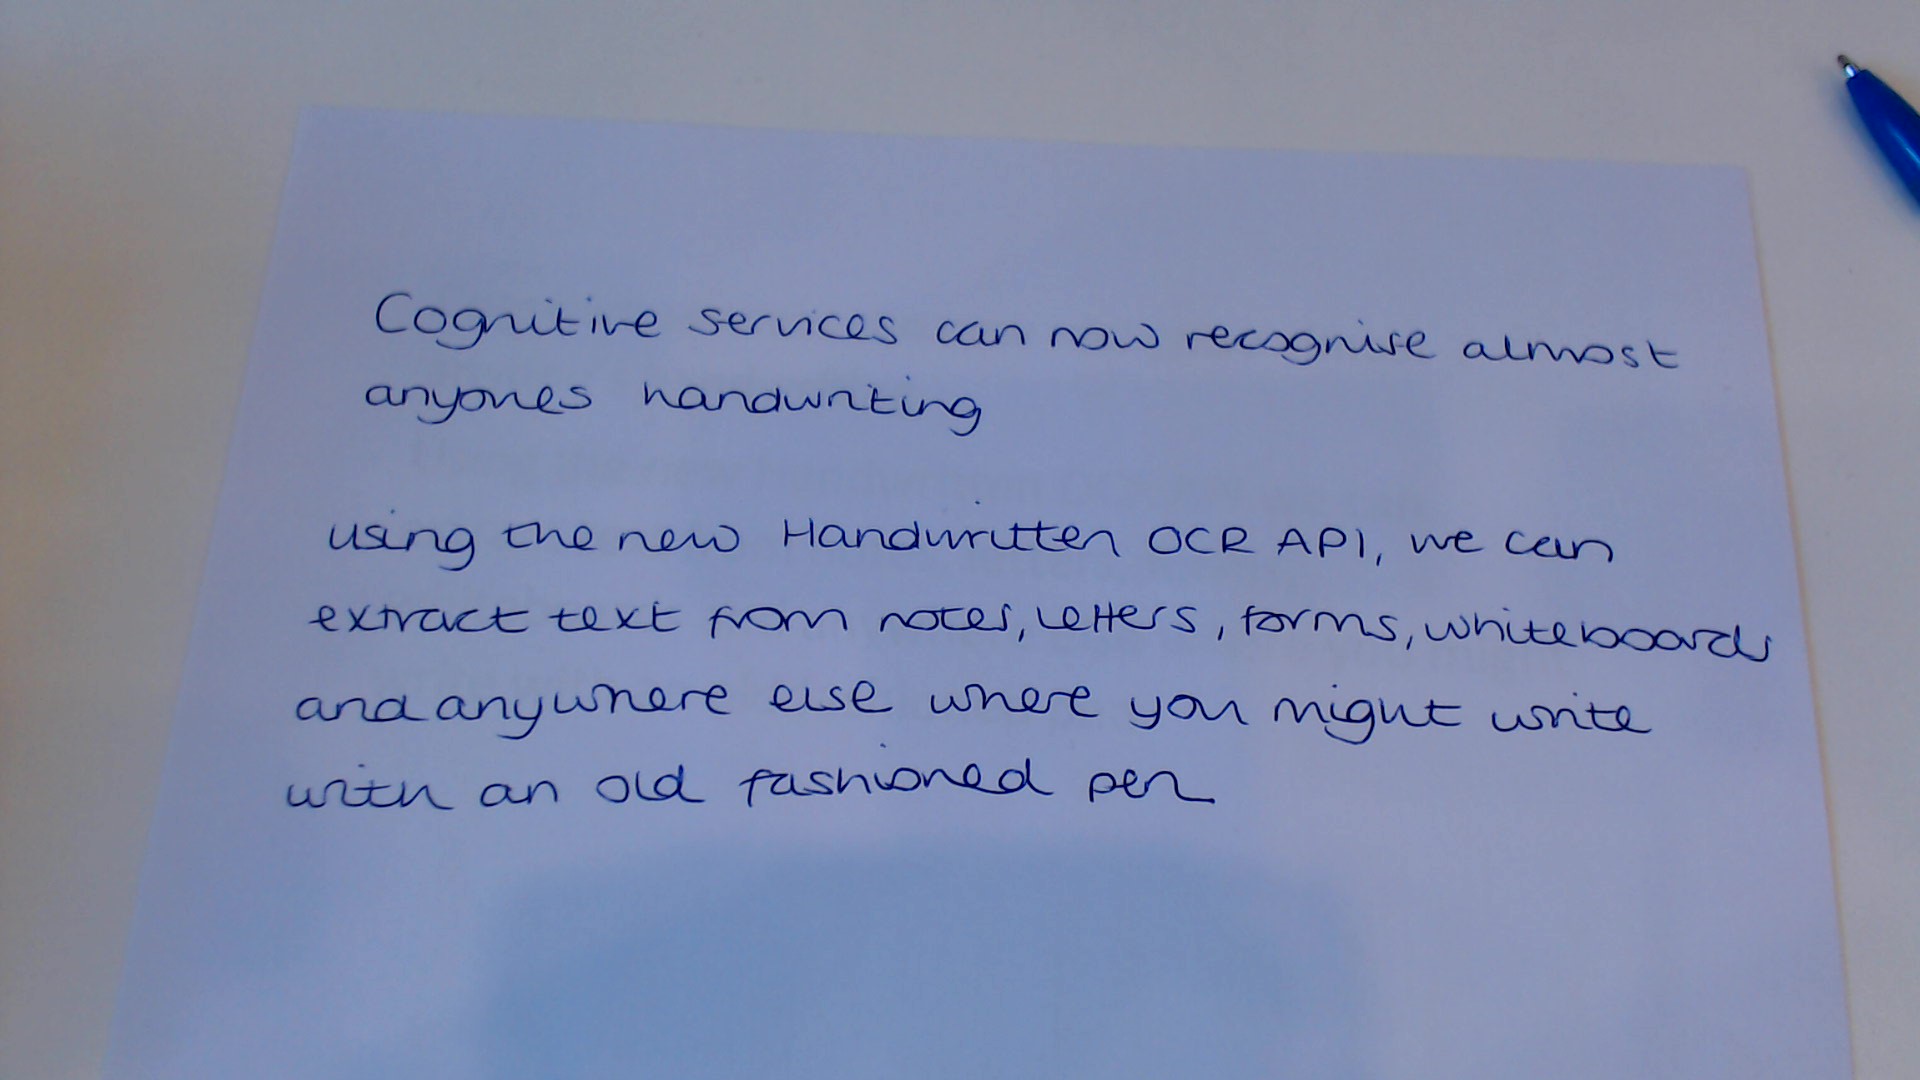 Cognitive services can now recognise almost
anyones handwriting
using the new Handwritten OCR API, we can
extract text from notes, letters, forms, whiteboards
and anywhere else where you might write
with an old fashioned pen